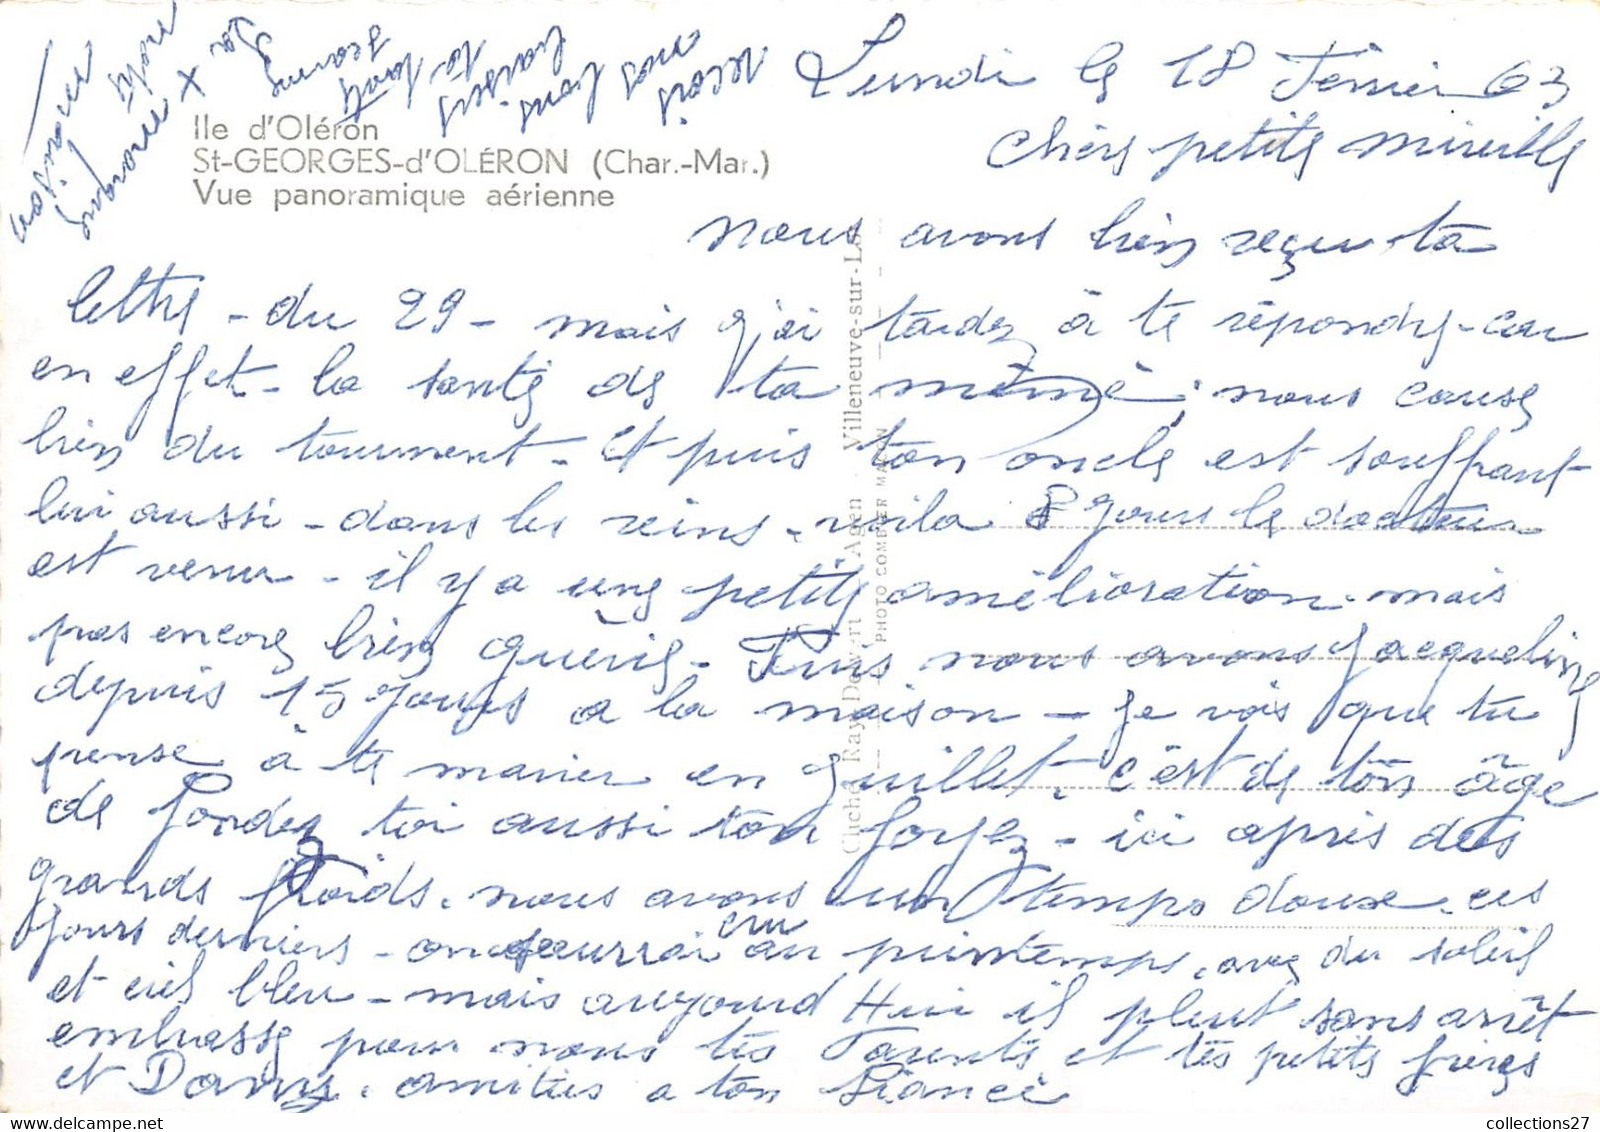 Lundi le 18 Fevrier 63
chère petite mireille
nous avons bien reçu ta
lettre - du 29 - mais j'ai tardez à te répondre - car
en effet - la santé de ta mémé, nous cause
bien du tourment - Et puis ton oncle est souffrant
lui aussi - dans les reins - voila 8 jours le docteur
est venu - il y a une petite amélioration. mais
pas encore bien guérie - Puis nous avons Jacqueline
depuis 15 jours a la maison - je vois que tu
pense à te marier en juillet, c'est de ton âge
de fondez toi aussi ton foyez - ici après des
grands froids. nous avons un temps doux. ces
jours derniers - on aurrai cru au printemps, avec du soleil
et ciel bleu - mais aujourd Hui il pleut sans arrêt
embrasse pour nous tes Parents et tes petits frères
et Dany. amitiés a ton Fiancé
recois
nos bons
baisers
ta tante
Jeanny
Ile d'Oléron
St-GEORGES-d'OLÉRON (Char.-Mar.)
Vue panoramique aérienne
Cliché Ray Delvert Agen . Villeneuve-sur-Lot
PHOTO COMBIER MACON
collections27